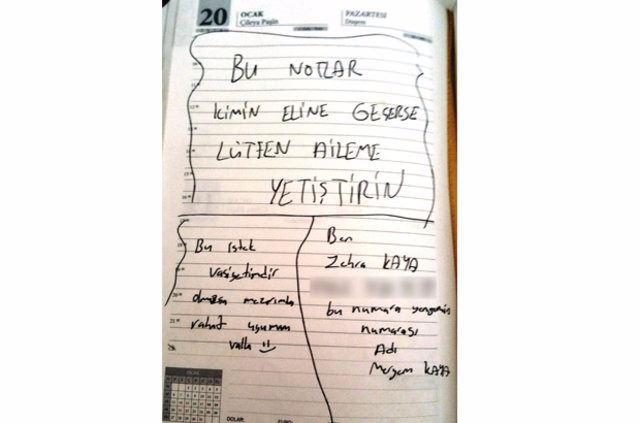 20
OCAK
PAZARTESİ
BU NOTLAR
KİMİN ELİNE GEÇERSE
LÜTFEN AİLEME
YETİŞTİRİN
Bu istek
vasiyetimdir
olmazsa mezarımda
rahat uyumam
valla
Ben
Zehra KAYA
bu numara yengemin
numarası
Adı
Meryem KAYA
OCAK
DOLAR: